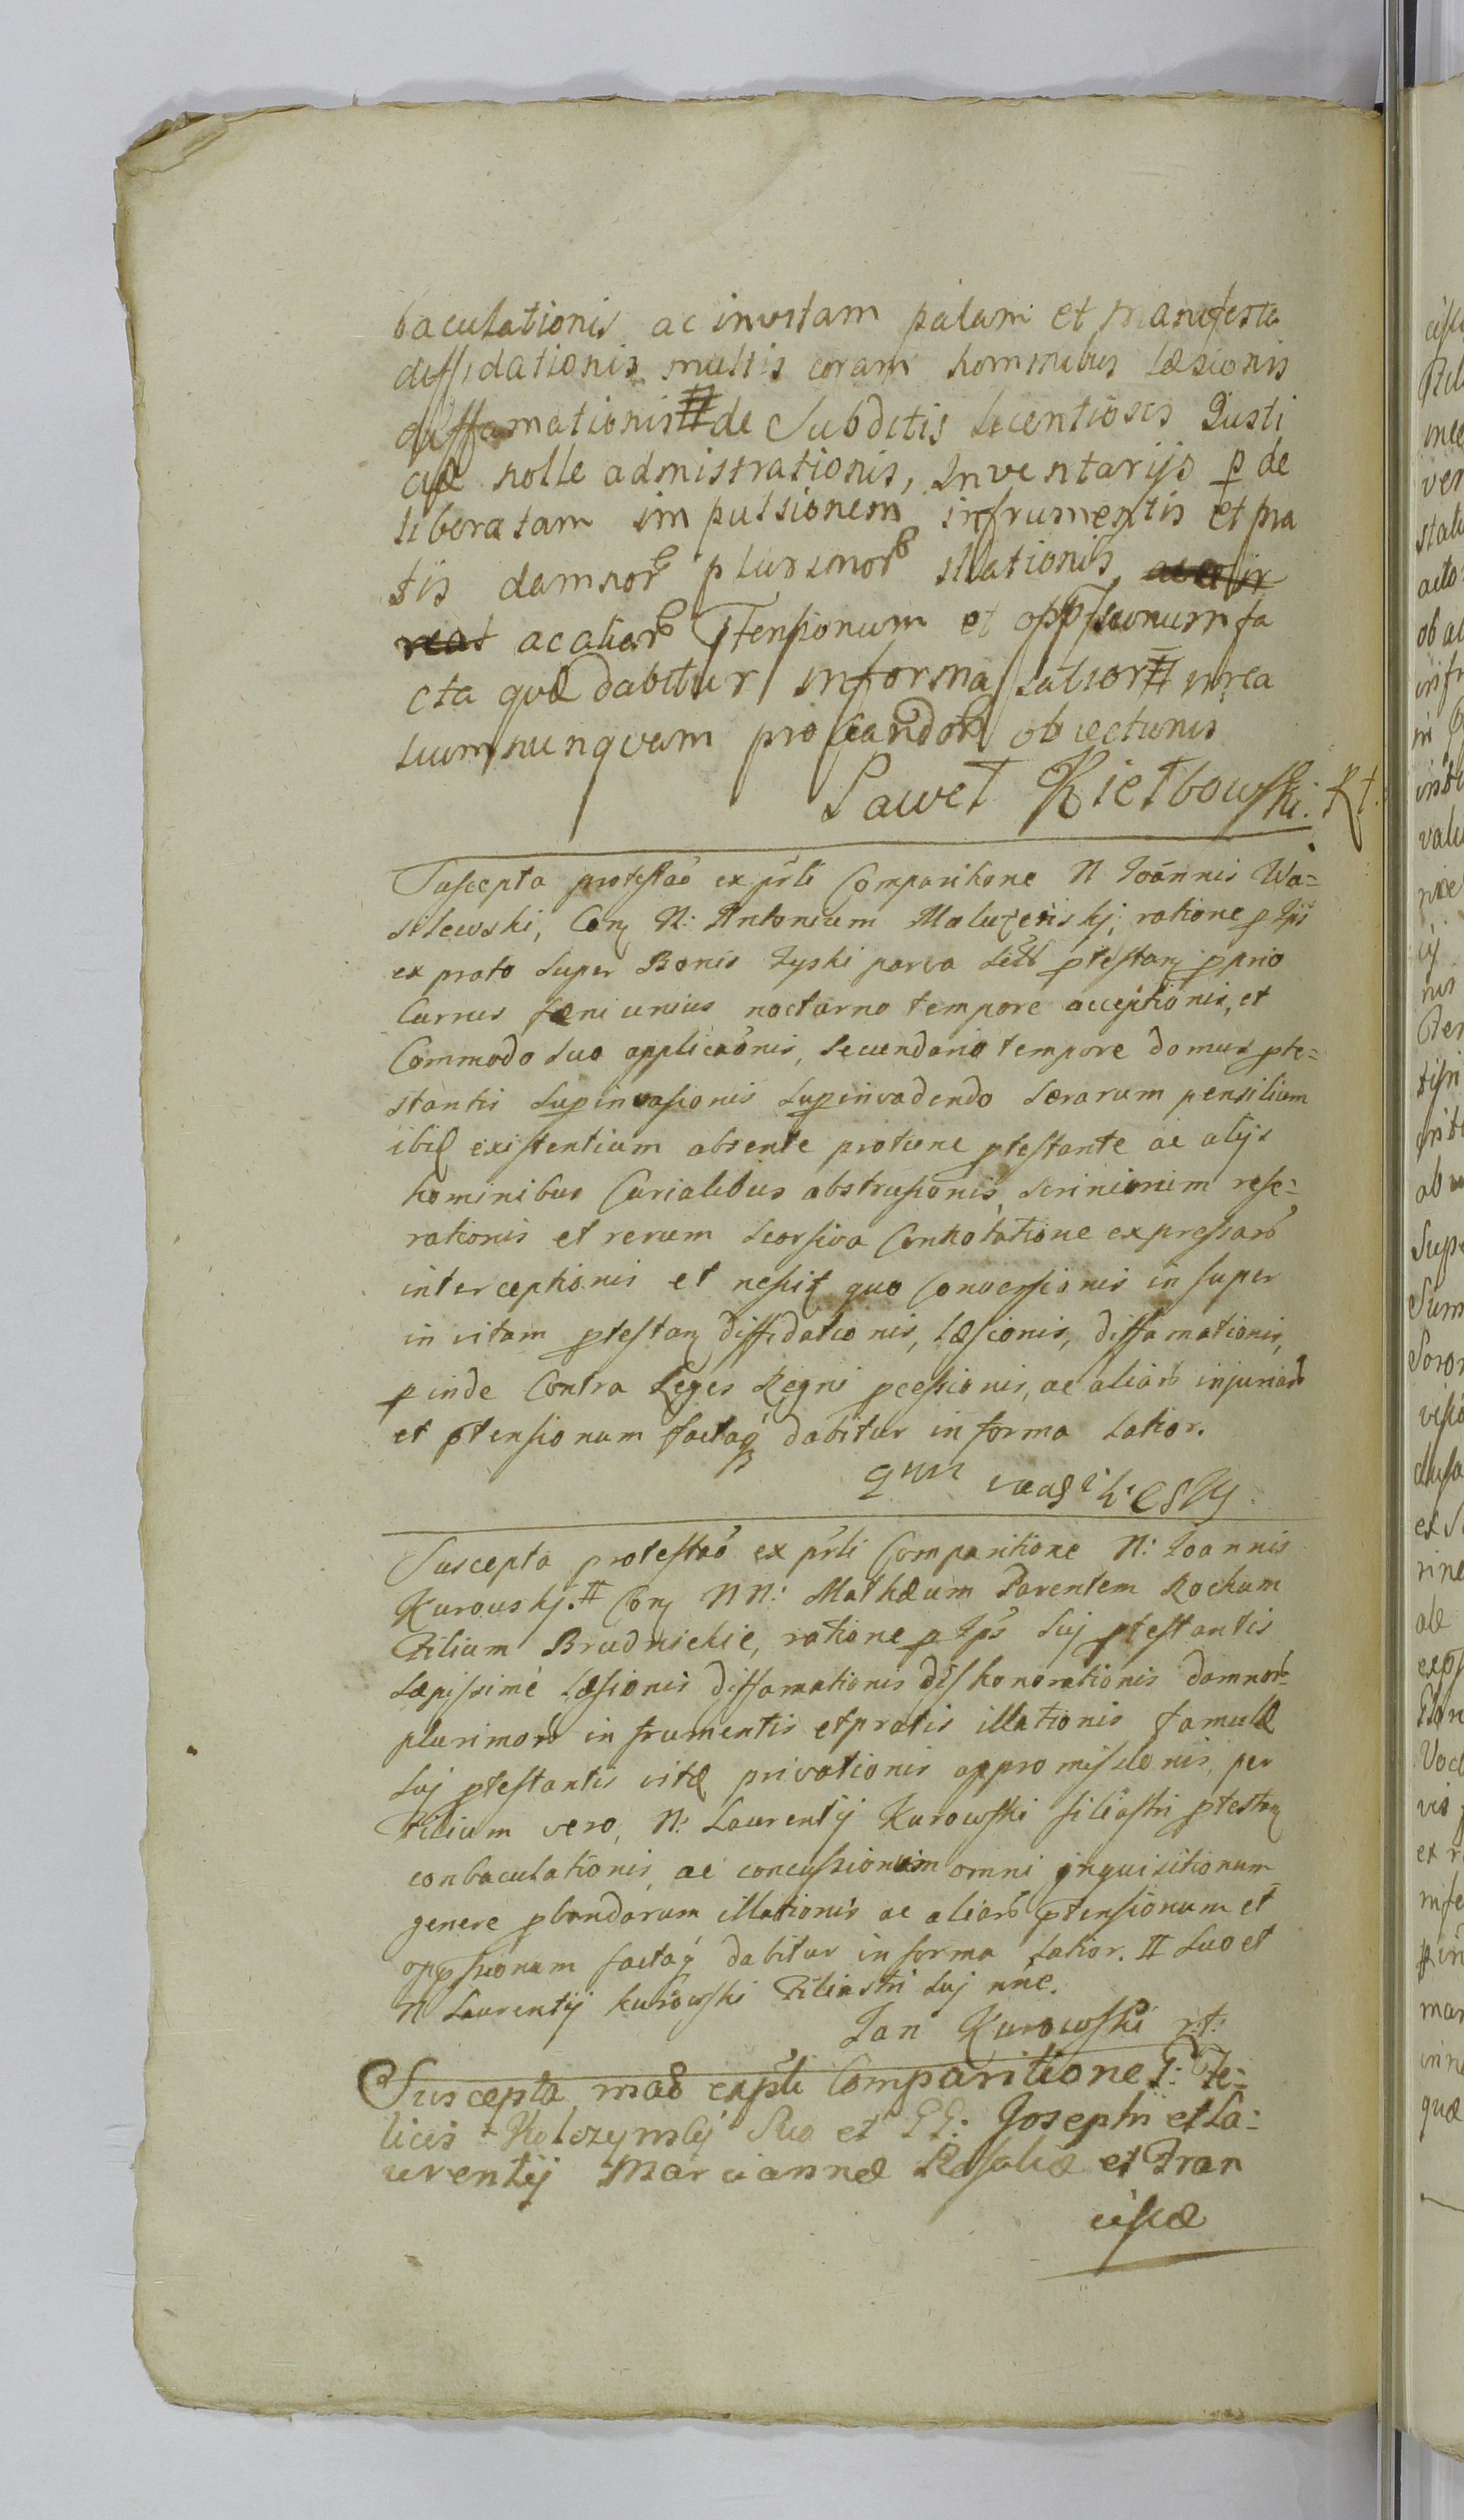 baculationis ac invitam palam et manifesta
diffidationis multis coram hominibus læsionis
diffamationis # de Subditis licentiosis Justi
ciæ nolle admistrationis, Inventarijs p de
liberatam impulsionem infrumentis et pra
tis damnor plurimor illationis
reas ac alior ptensionum et oppssionum fa
cta quæ dabitur informa latior # in rea
tum nunquam pro
Paweł Kiełbowski. Rt.
Suscepta protestao ex prsti Comparitione N Joannis Wa=
silewski, Con N: Antonium Maluzenskj, ratione p Ips
ex prato super Bonis Zyski parva ptestan pprio
Currus fæni unius nocturno tempore acceptionis, et
Commodo suo applicaonis, secundario tempore domus pte=
stantis supinvasionis supinvadendo serarum pensilium
ibid existentium absente protunc ptestante ac alijs
hominibus Curialibus abstrusionis, scriniorum rese=
rationis et rerum seorsiva Connotatione expressar
interceptionis et nescit quo Conversionis insuper
in vitam ptestan diffidationis, læsionis, diffamationis,
pinde Contra Leges Regni pcessionis, ac aliar injuriar
et ptensionum factaq dabitur in forma latior.
Suscepta protestao ex prsti Comparitione N: Joannis
Kurowskj. # Con NN: Mathæum Parentem Rochum
Filium Brudnickie, ratione p Ips suj ptestantis
sæpissimè læsionis diffamationis dishonorationis damnor
plurimor in frumentis et pratis illationis famulæ
suj ptestantis vitæ privationis appromissionis, per
Filium vero, N: Laurentij Kurowski filiastri ptestan
conbaculationis, ac concussionum omni inquisitionum
genere pbandarum illationis ac aliar ptensionum et
oppssionum factaq dabitur in forma latior. # suo et
N Laurentij Kurowski Filiastri suj nne.
Jan Kurowski rt:
Suscepta mao ex prsti Comparitione G: Fe=
licis Kolczynskj Suo et GG: Josephi et La=
urentij Mariannæ Rosaliæ et Fran
ciscæ